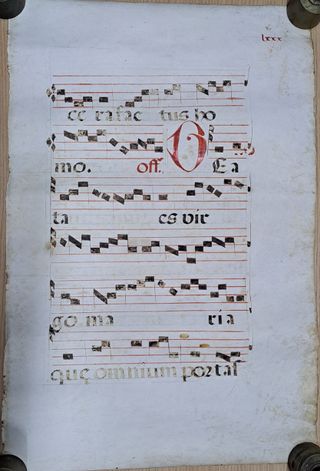 lxxx
ce ra fac tus ho
mo. off. BEa
ta es vir
go ma ria
quę omnium portas